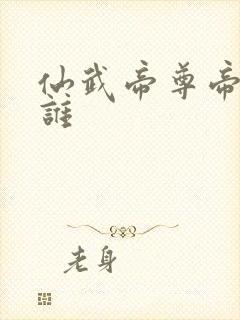 仙武帝尊帝
誰
老身